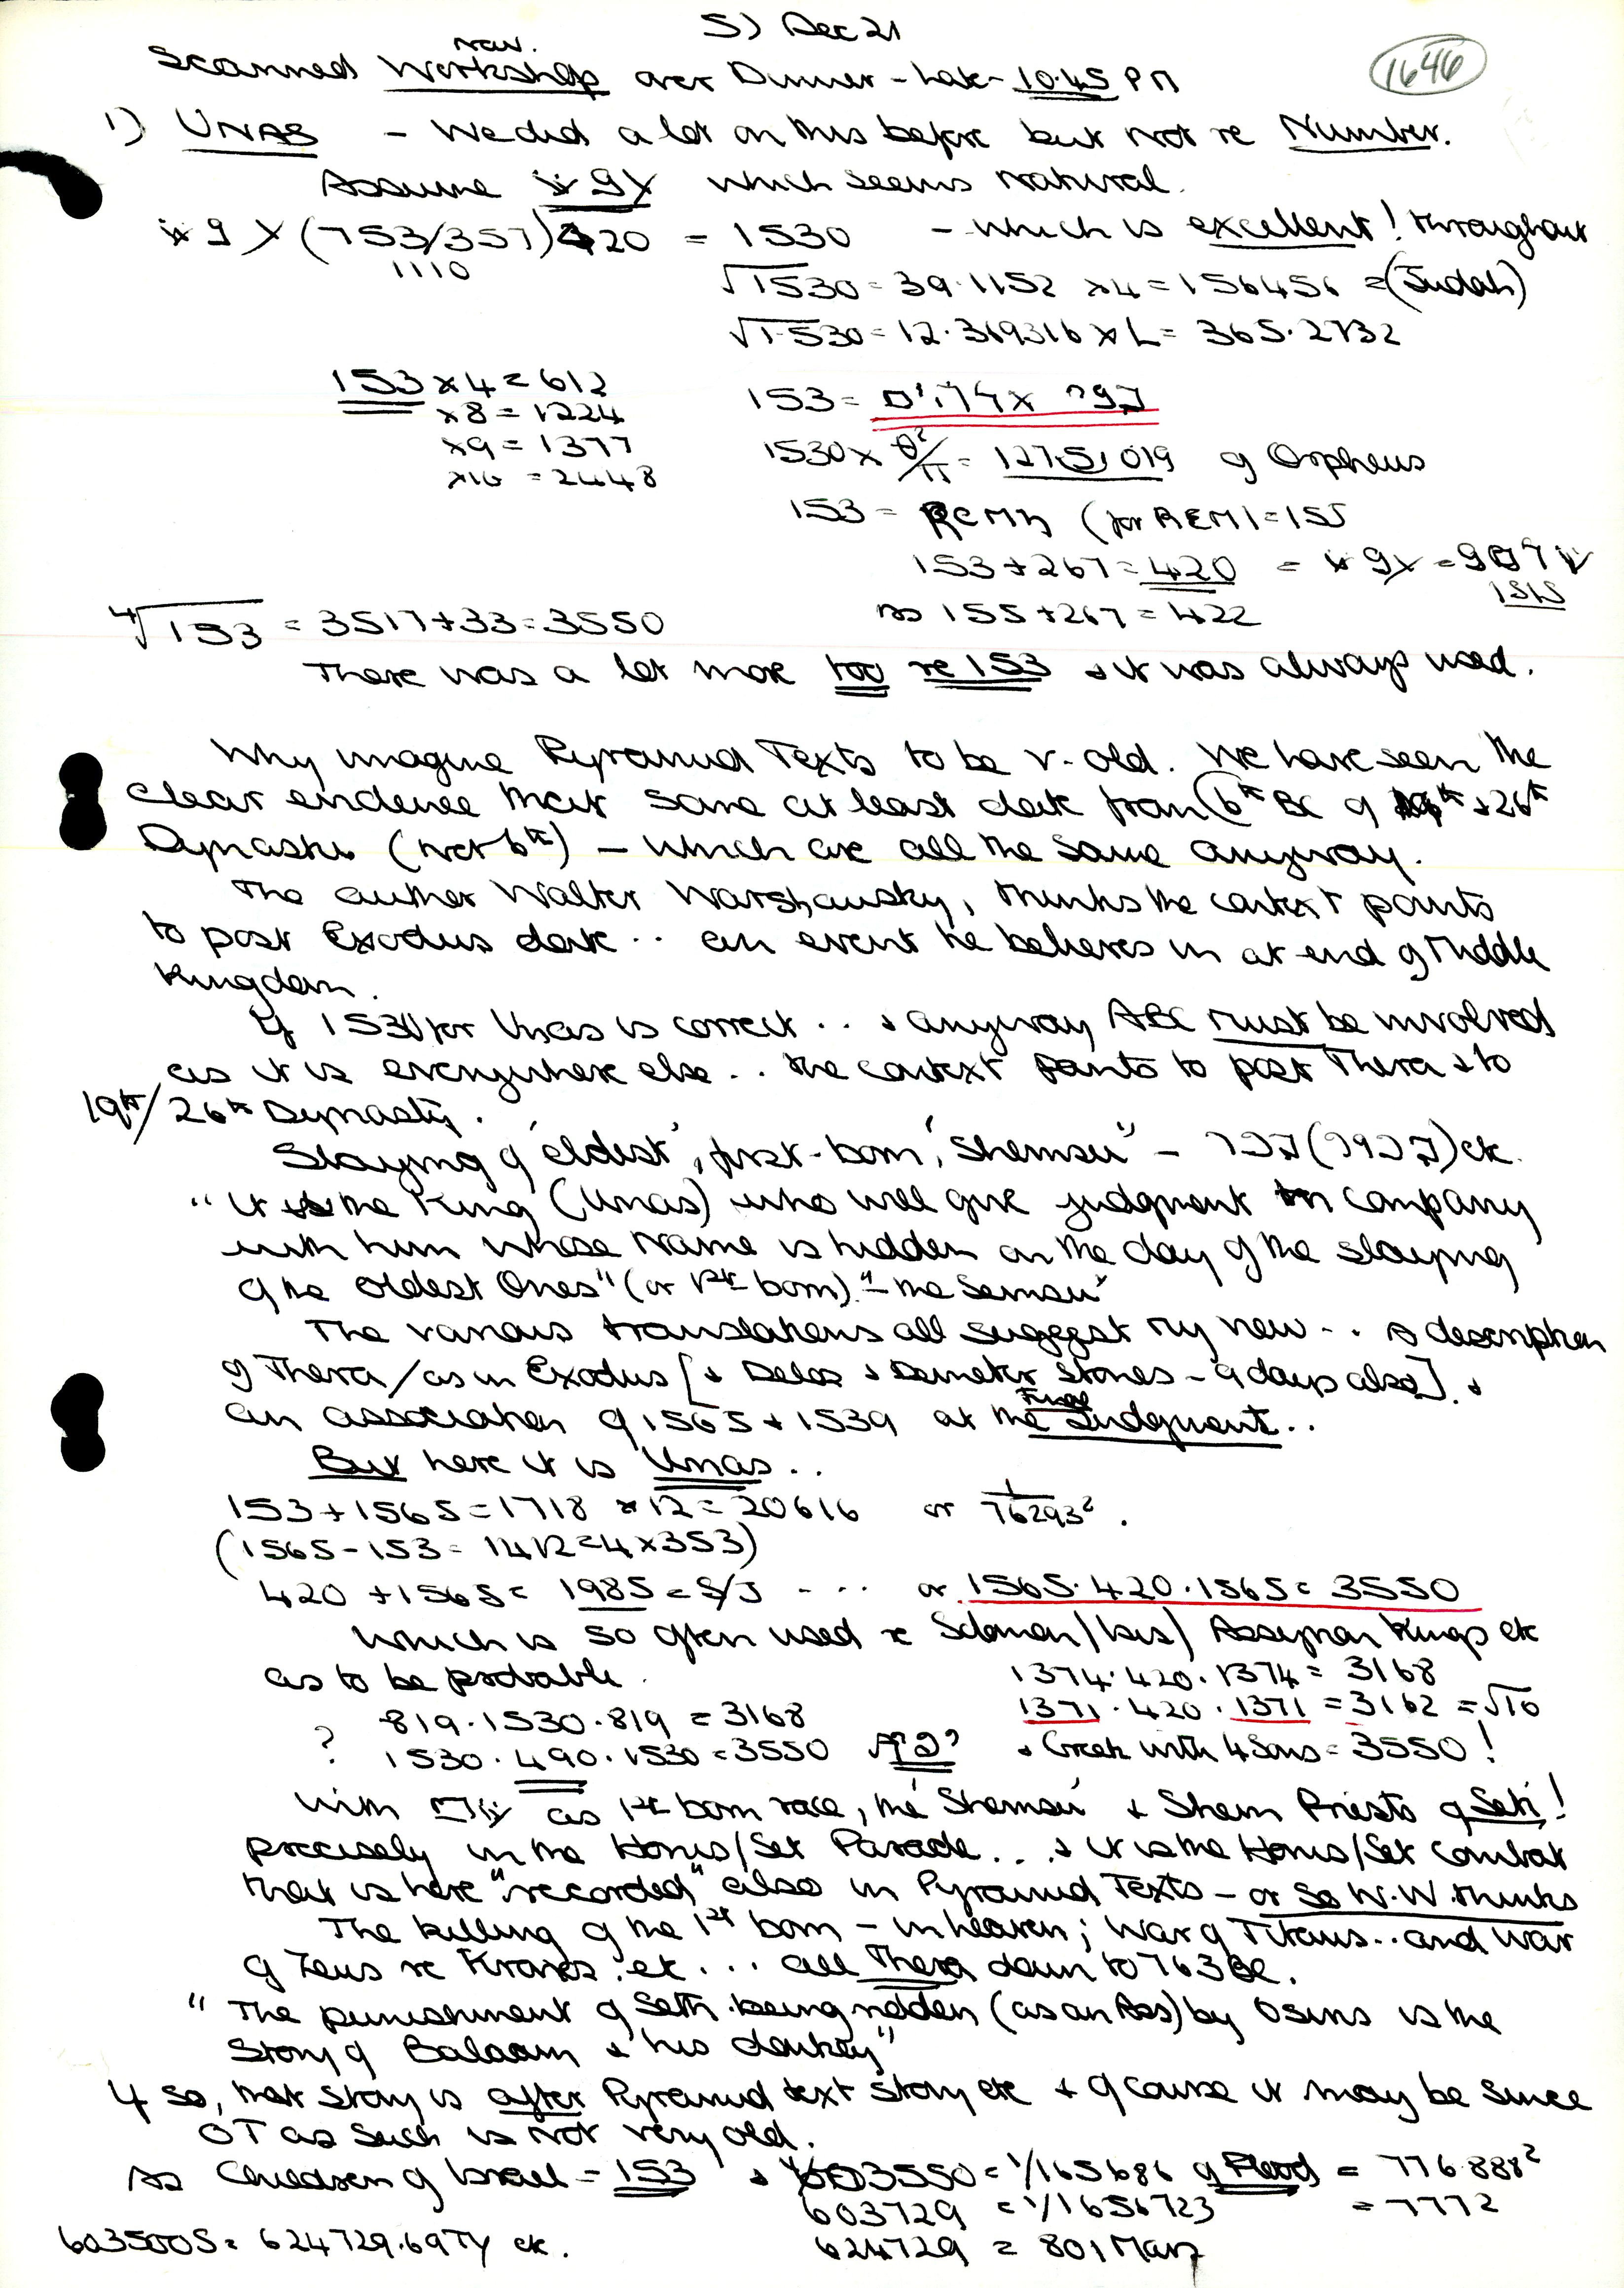 5) Dec 21
Scanned Workshop over Dinner - Late - 10.45 PM
Nov.
1646
1) UNAS - We did a lot on this before but not re Number.
Assume which seems natural.
(753/357) 420 = 1530 - which is excellent! throughout
1110
√1530 = 39.1152 x4 = 156456 = (Judah)
√1530 = 12.369316 x L = 365.2732
153 x4 = 612
x8 = 1224
x9 = 1377
x16 = 2448
153 =
1530 x θ²/π = 1275,019 of Orpheus
153 = (for REMI = 155
153 + 267 = 420 =
ISIS
so 155 + 267 = 422
⁴√153 = 3517 + 33 = 3550
There was a lot more too re 153 & it was always used.
Why imagine Pyramid Texts to be v. old. We have seen the
clear evidence that some at least date from 6th BC of & 26th
Dynasties (not 6th) - which are all the same anyway.
The author Walter Warshawsky, thinks the context points
to post Exodus date .. an event he believes in at end of Middle
Kingdom.
If 1530 for Unas is correct .. & anyway ABC must be involved
as it is everywhere else .. the context points to post Thera & to
19th/26th Dynasty.
Slaying of 'eldest', 'first-born', 'Shemsu" - etc.
"it is the King (Unas) who will give judgment in company
with him whose Name is hidden on the day of the slaying
of the Oldest Ones" (or 1st born) - "the Semsu"
The various translations all suggest my view .. a description
of Thera / as in Exodus [& Delos & Demeter stories - 9 days also]. &
an association of 1565 & 1539 at the Final Judgment ..
But here it is Unas ..
153 + 1565 = 1718 x 12 = 20616 or 1/76293².
(1565 - 153 = 1412 = 4 x 353)
420 + 1565 = 1985 = S/J .... or 1565.420.1565 = 3550
which is so often used re Solomon / Isis / Assyrian Kings etc
as to be probable.
1374.420.1374 = 3168
819.1530.819 = 3168
1371.420.1371 = 3162 = √10
? 1530.490.1530 = 3550 & Greek with 4 Sons = 3550!
with as 1st born race, the 'Shemsu' & Shem Priests of Seti!
precisely in the Horus/Set Parade ... & it is the Horus/Set combat
that is here "recorded" also in Pyramid Texts - or so W.W. thinks
The killing of the 1st born - in heaven; War of Titans .. and War
of Zeus re Kronos etc ... all Thera down to 763 BC.
"The punishment of Seth being ridden (as an Ass) by Osiris is the
Story of Balaam & his donkey"
If so, that story is after Pyramid text story etc & of course it may be since
OT as such is not very old.
As Children of Israel = 153 & 603550 = 1/165686 of Flood = 776.888²
603729 = 1/1656723 = 7772
603550S = 624729.69TY etc. 624729 = 801 Marz